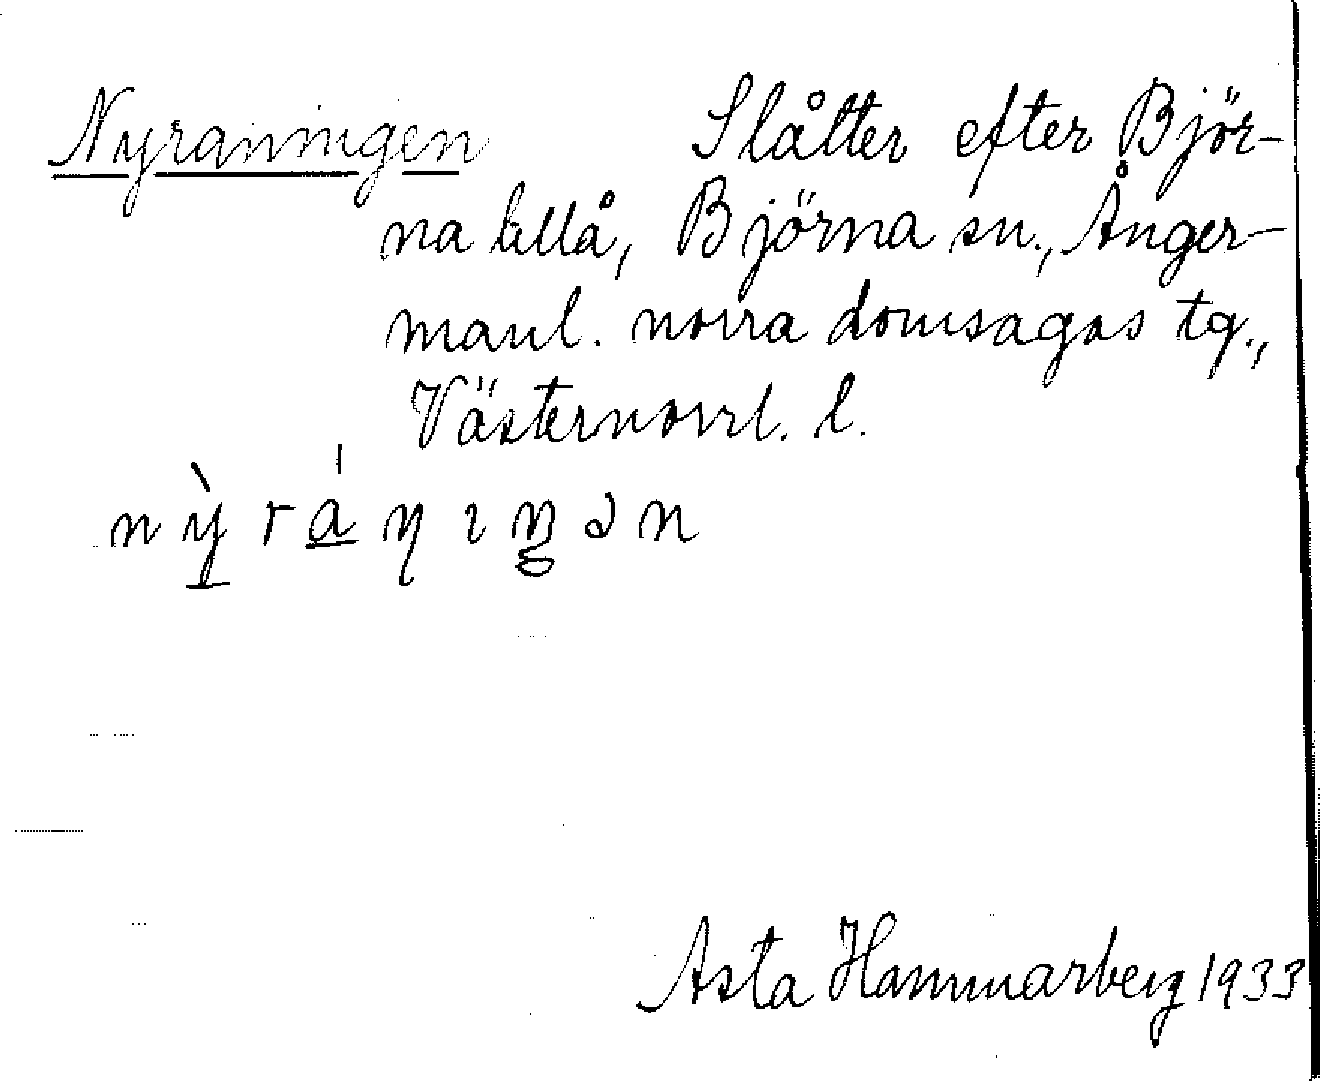 Nyraningen Slåtter efter Björ-
na lillå, Björna sn., Ånger-
manl. norra domsagas tg.,
Västernorrl. l.
Asta Hammarberg 1933